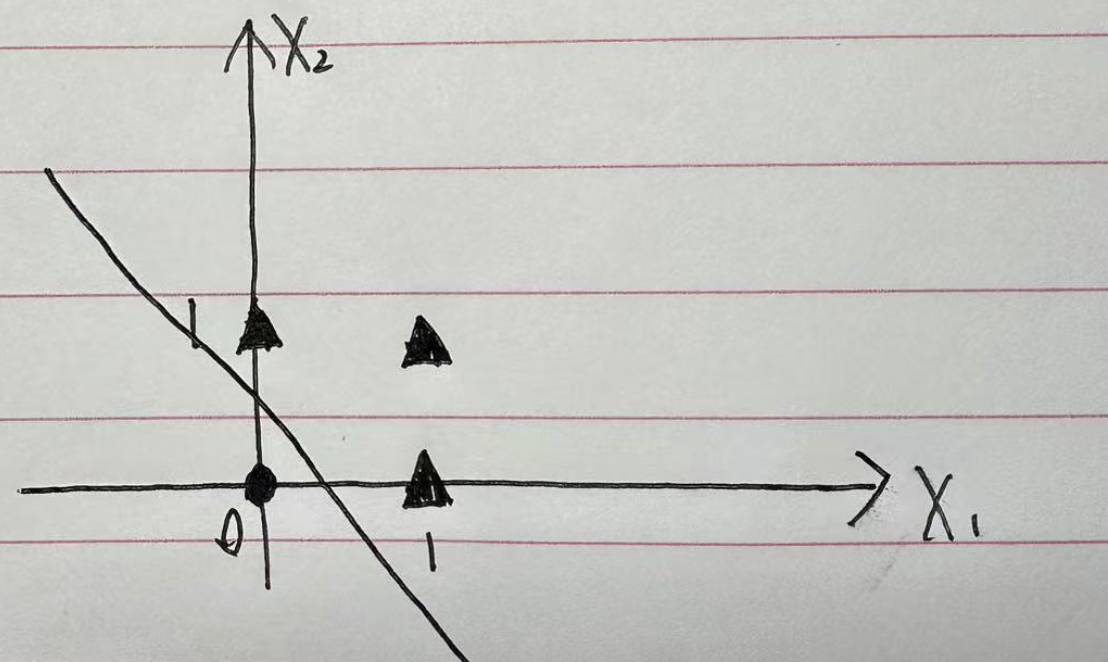 X₂
1
0
1
X₁